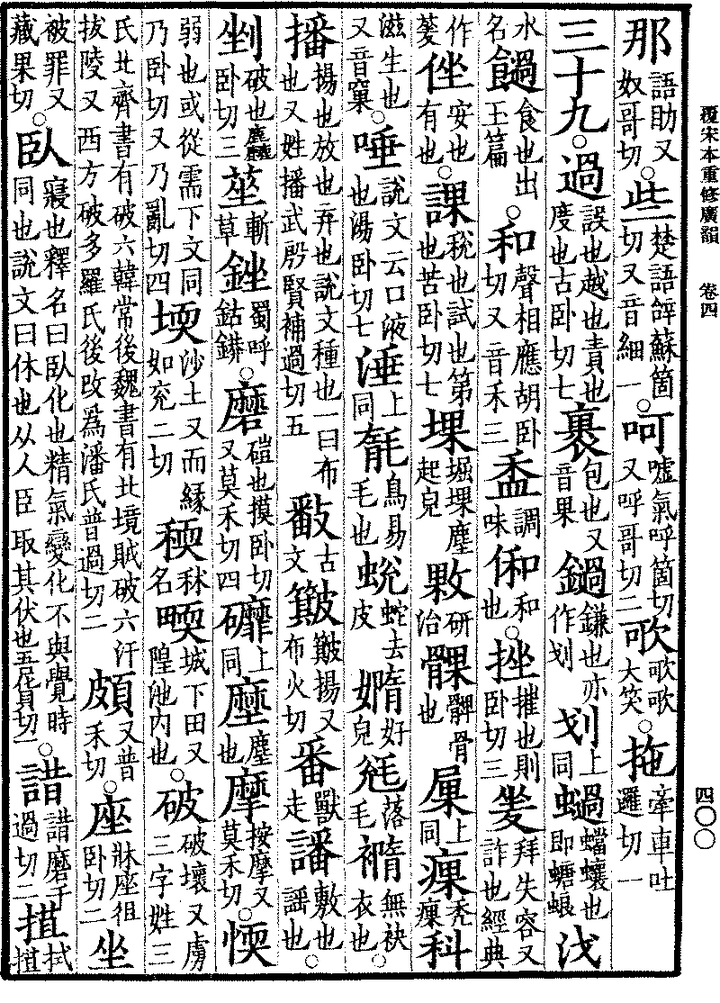 覆宋本重修廣韻 卷四 四〇〇
那語助又奴哥切○些楚語辝蘇箇切又音細一○呵噓氣呼箇切又呼哥切二歌歌歌大笑○拖牽車吐邏切一
三十九○過誤也越也責也度也古臥切七裹包也又音果鍋鎌也亦作划划上同蝸蟷蠰也即螗蜋㳀
水名䭞食也出玉篇○和聲相應胡臥切又音禾三盉調味俰和也○挫摧也則臥切三夎拜失容又詐也經典
作蓌侳安也有也○課稅也試也第也苦臥切七堁堀堁塵起皃敤研治髁髀骨也㞅上同瘰禿瘰科
滋生也又音窠○唾說文云口液也湯臥切七涶上同毻鳥易毛也蛻蛇去皮嫷好皃毤落毛䙐無袂衣也○
播揚也放也弃也說文種也一曰布也又姓播武殷賢補過切五譒古文簸簸揚又布火切番獸走譒敷也謠也○
剉破也麤臥切三莝斬草銼蜀呼鈷𨫒○磨磑也摸臥切又莫禾切四䃺上同塺塵也摩按摩又莫禾切○愞
弱也或從需下文同乃臥切又乃亂切四堧沙土又而緣如兖二切稬秫名㬉城下田又隍池內也○破破壞又虜三字姓三
氏北齊書有破六韓常後魏書有北境賊破六汗拔陵又西方破多羅氏後改爲潘氏普過切二頗又普禾切○座牀座徂臥切二坐
被罪又藏果切○臥寢也釋名曰臥化也精氣變化不與覺時同也說文曰休也从人臣取其伏也五貨切一○䜺䜺磨千過切二揩拭揩